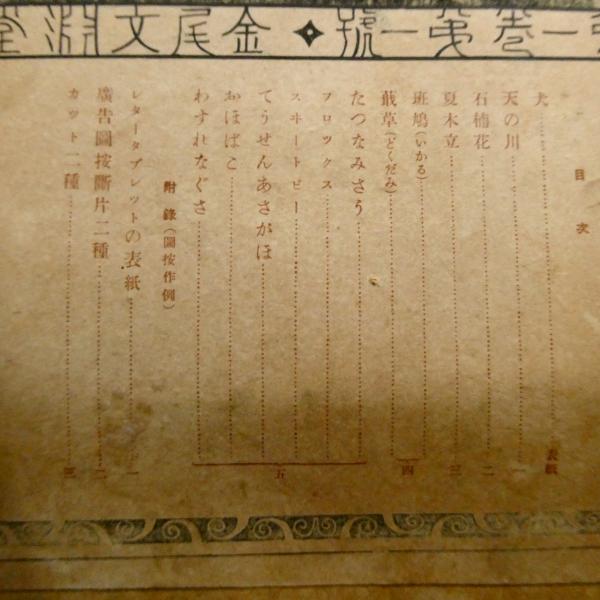 第一巻第一號 ✦ 金尾文淵堂
目次
犬 表紙
天の川 一
石楠花 二
夏木立 三
斑鳩(いかる)
蕺草(どくだみ) 四
たつなみさう
フロツクス
スヰートピー
てうせんあさがほ 五
おほばこ
わすれなぐさ
附錄(圖按作例)
レタータブレットの表紙 一
廣告圖按斷片二種 二
カツト二種 三